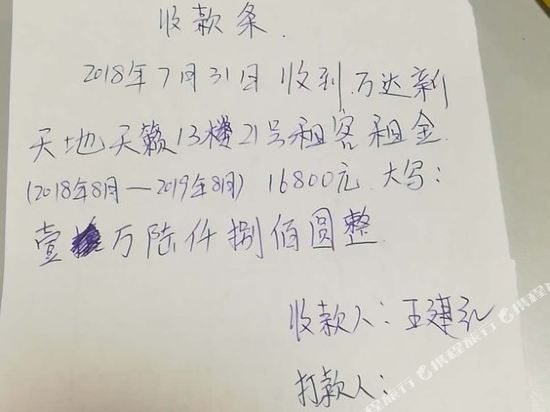 收款条.
2018年7月31日 收到 万达新
天地天籁13楼21号租客租金
(2018年8月—2019年8月) 16800元 大写:
壹万陆仟捌佰圆整
收款人: 王建
打款人:
携程旅行